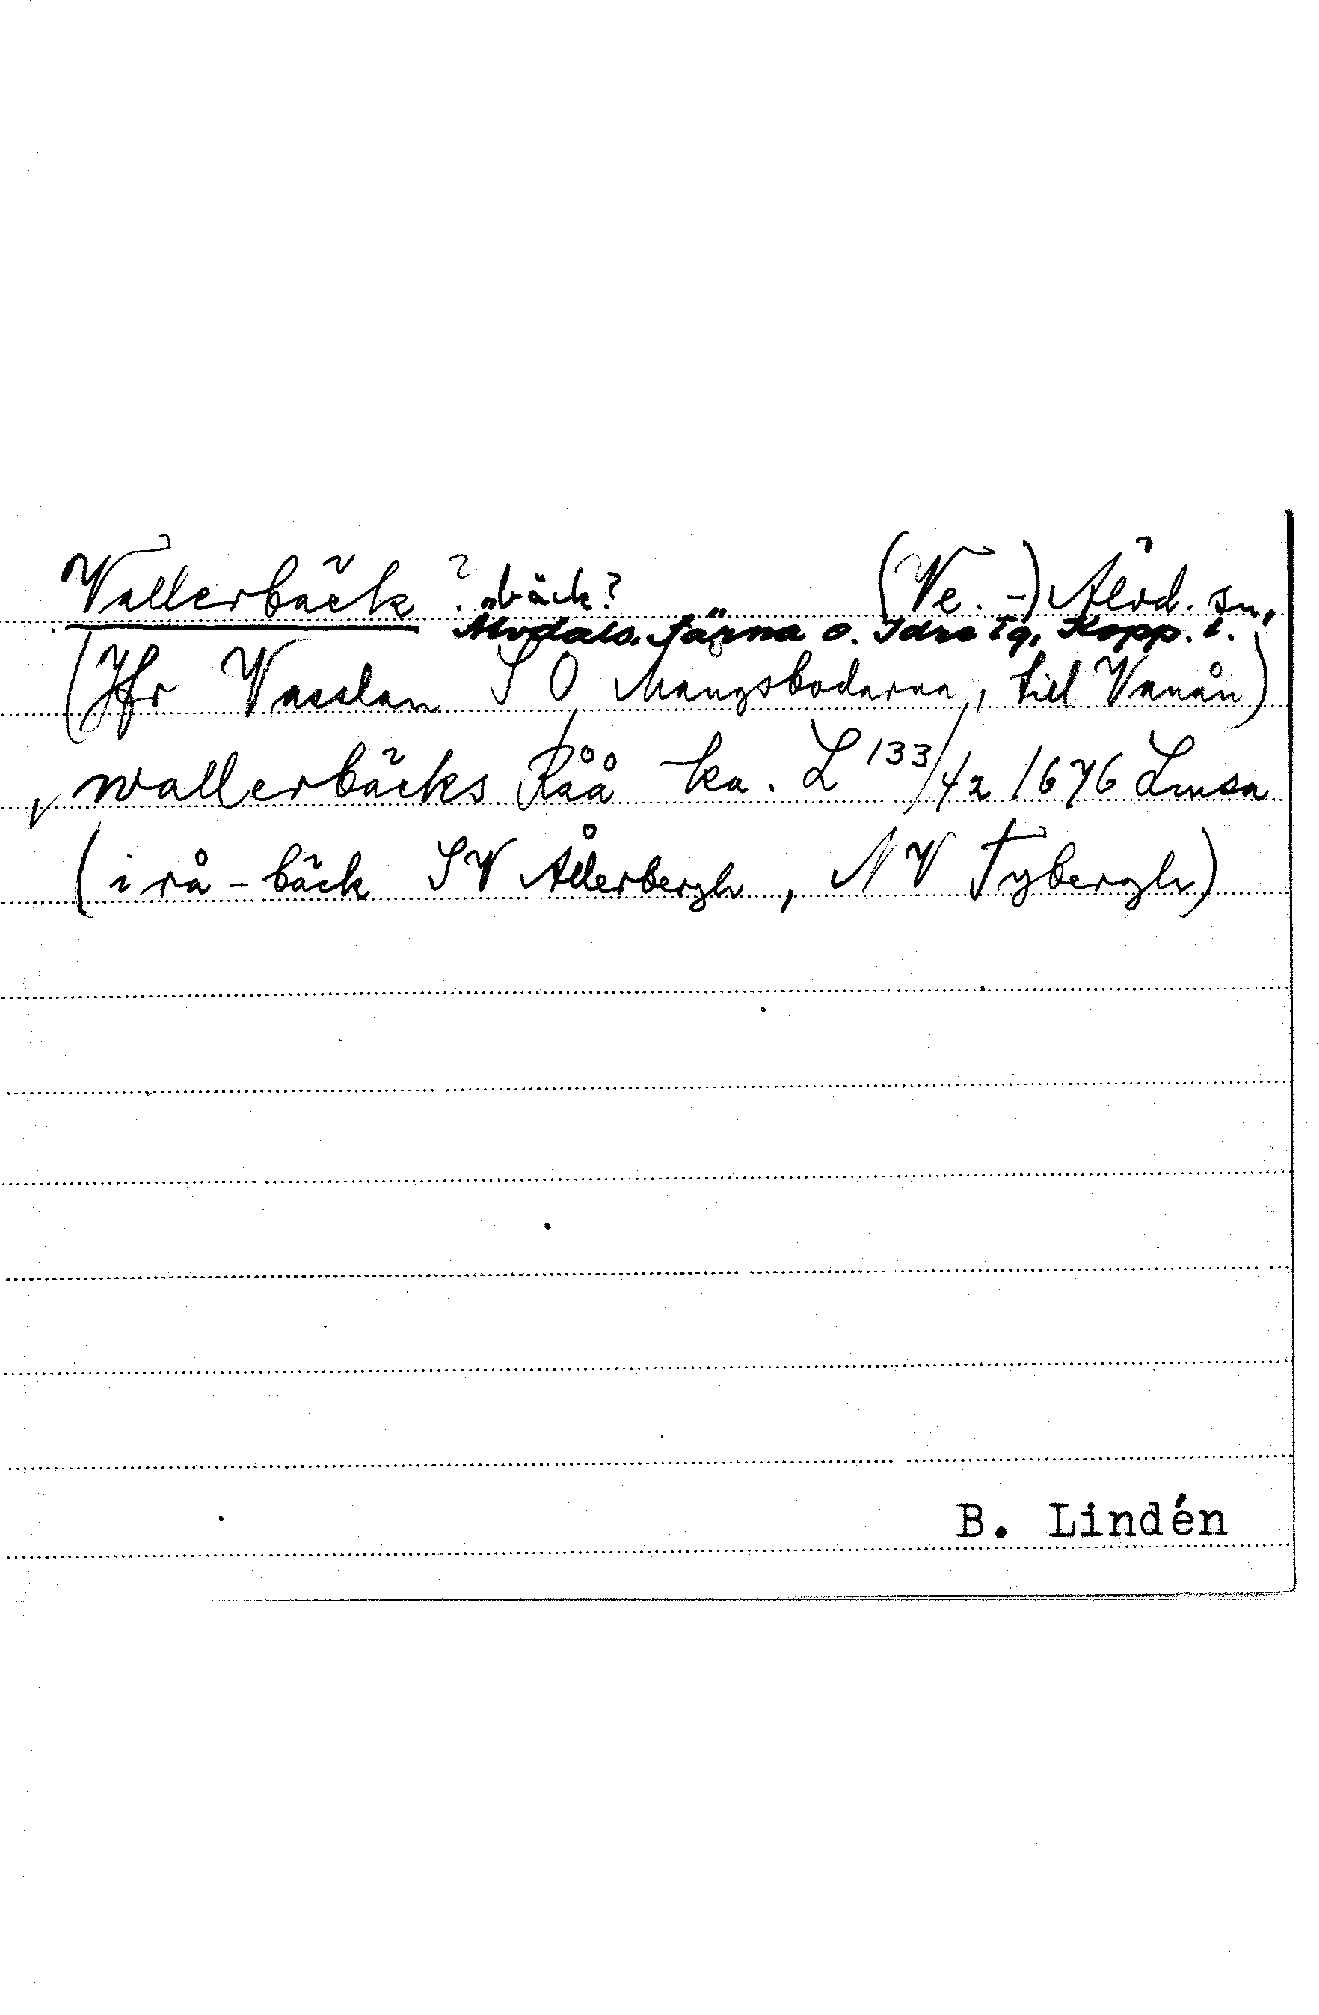 Vallerbäck ? bäck? (Ve. -) Älvd. sn,
Älvdals, Järna o. Idre tg, Kopp. l.
(Jfr Vasslan S O Mångsbodarna, till Vanån)
wallerbäcks Råå ka. L 133/42 1676 Lmsa
(i rå - bäck SV Ållerbergh, NV Tybergh)
B. Lindén